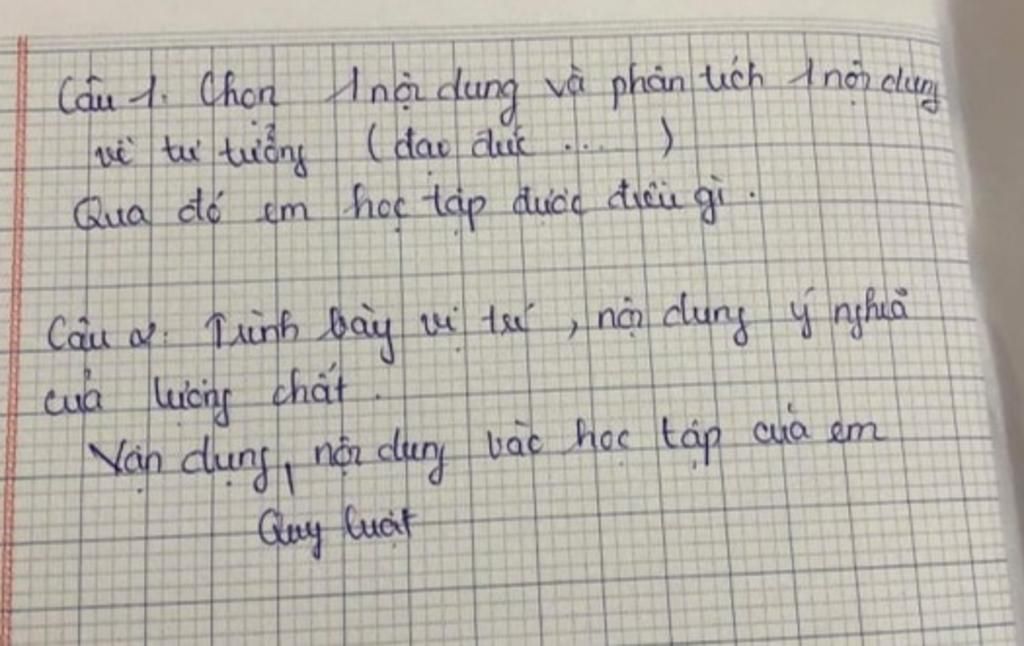 Câu 1. Chọn 1 nội dung và phân tích 1 nội dung
về tư tưởng (đạo đức .... )
Qua đó em học tập được điều gì.
Câu 2. Trình bày vị trí, nội dung ý nghĩa
của lượng chất.
Vận dụng, nội dung vào học tập của em
Quy luật